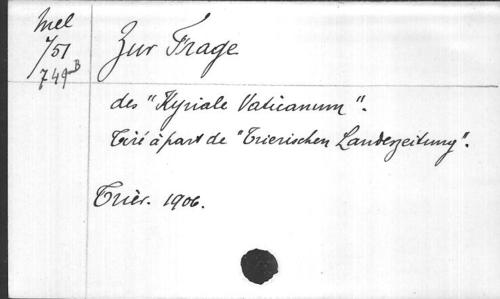 Mel
7/51
749 B
Zur Frage
des "Kyriale Vaticanum".
Tiré à part de "Trierischen Landeszeitung".
Trier. 1906.